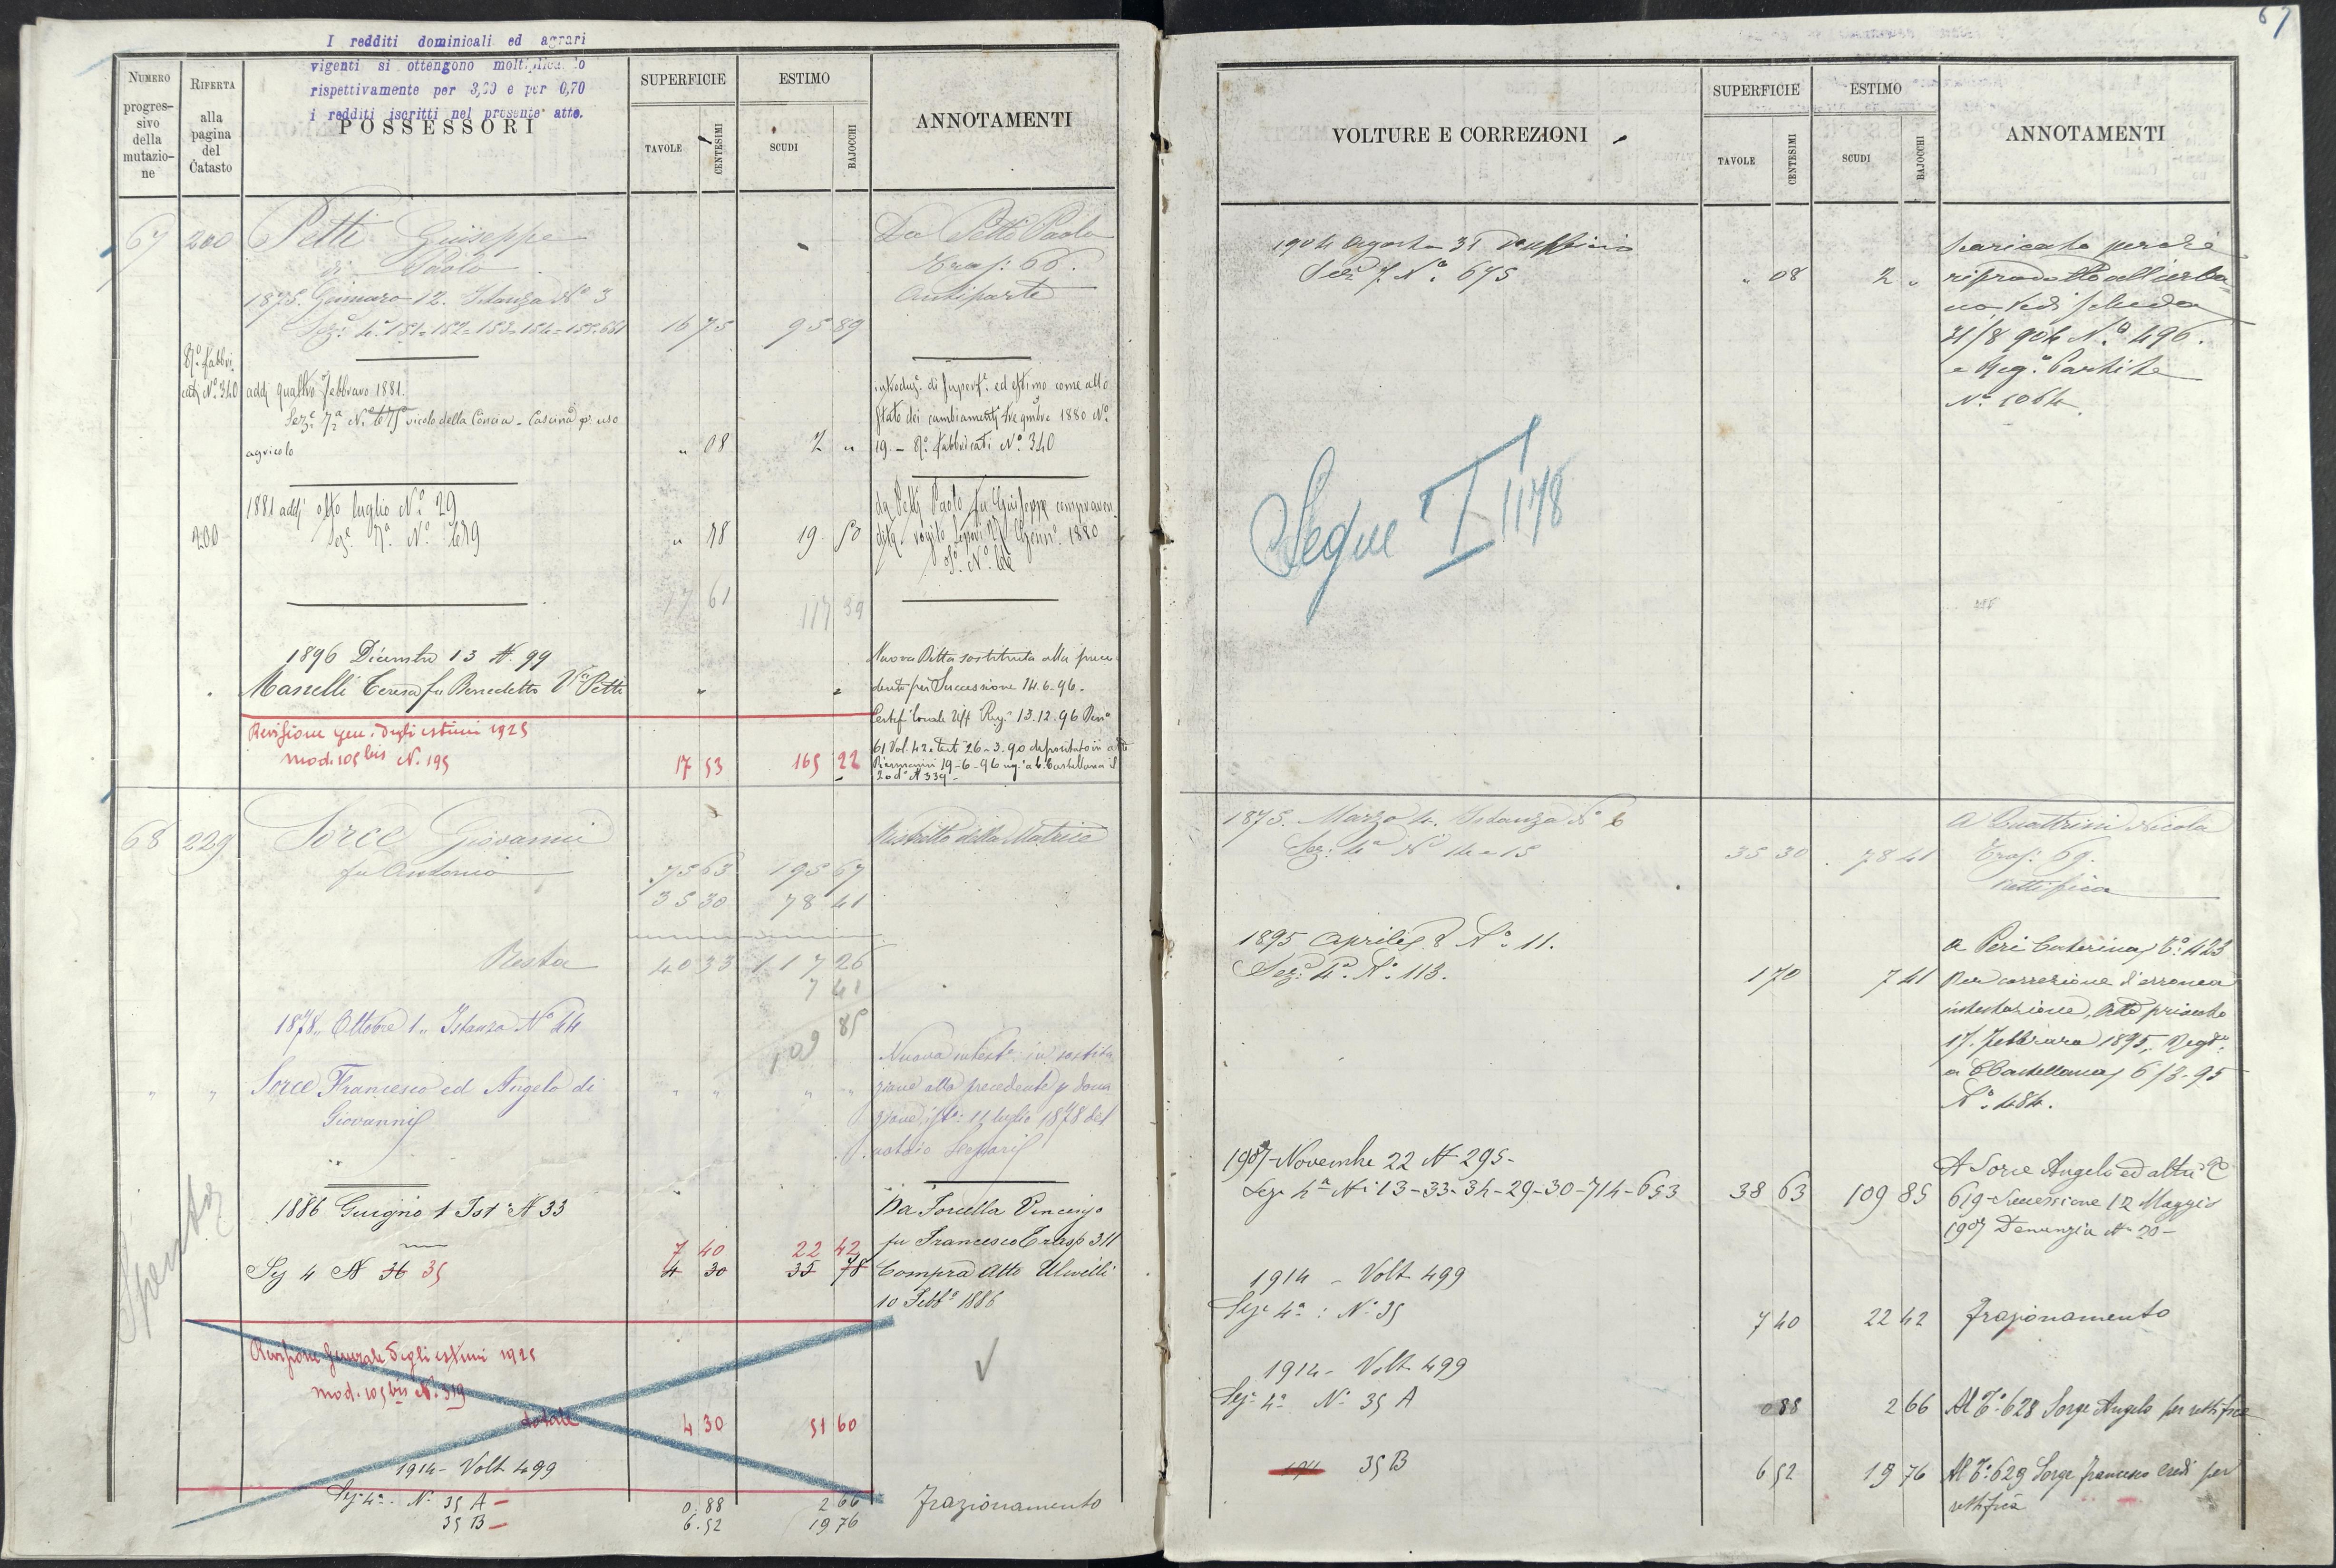 67
I redditi dominicali ed agrari
vigenti si ottengono
rispettivamente per e per 0,70
i redditi iscritti nel presente atto.
NUMERO
progres-
sivo
della
mutazio-
ne
RIFERTA
alla
pagina
del
Catasto
POSSESSORI
SUPERFICIE
TAVOLE
CENTESIMI
ESTIMO
SCUDI
BAJOCCHI
ANNOTAMENTI
67 200 Petti Giuseppe Da Petti Paolo
di Paolo Trasp: 66.
1875. Gennaro 12. Istanza No 3 Antiparte
Sez: 4a 151=152=153=154=155=651 16 75 95 89
Ro Fabbri-
cati No 340 addì quattro Febbraro 1881.
Seze 7a No 675 vicolo della Concia - Cascina p. uso
agricolo " 08 2 "
introduz. di superfe. ed estimo come allo
stato dei cambiamenti 1880 No
19 - Ro Fabbricati No 340
1881 addì otto luglio No 29
200 Seze 7a No 78 19 50
da Petti Paolo fu Giuseppe compraven-
dita rogito 1880
17 61 117 39
1896 Dicembre 13 N. 99
Masselli Teresa fu Benedetto Va Petti " "
Nuova Ditta sostituita alla prece-
dente per Successione 14.6.96.
13.12.96
61 Vol. 42 26-3.90 depositato in
19-6-96 a C. Castellana
N 339
Revisione gen. degli estimi 1925
mod. 105 bis N. 195 17 53 165 22
68 229 Sorce Giovanni Ristretto della Matrice
fu Antonio 75 63 195 67
35 30 78 41
Resta 40 33 117 26
7 41
109 85
1878,, Ottobre 1,, Istanza No 44
" " Sorce Francesco ed Angelo di " " " "
Giovanni
Nuova intest. in sostitu-
zione alla precedente p dona-
zione 11 luglio 1878 del
notaio
1886 Giugno 1 Ist N 33
Sez 4 N 36 35
7 40 22 42
4 30 35 78
Da Forcella Vincenzo
fu Francesco Trasp 311
Compra Atto Ulivelli
10 Febbo 1886
Spenta
Revisione Generale degli estimi 1925
mod. 105 bis N. 319
totale 4 30 51 60
1914 - Volt 499
Sez 4a - No 35 A - 0.88 2 66 Frazionamento
35 B - 6.52 19 76
VOLTURE E CORREZIONI
SUPERFICIE
TAVOLE
CENTESIMI
ESTIMO
SCUDI
BAJOCCHI
ANNOTAMENTI
1904 Agosto 31 d'ufficio
Seze 7. No 675 " 08 2 "
Scaricato perchè
riprodotto all'urba-
no. Vedi scheda
31/8 904 No 496.
e Rego Partite
No 1064.
Segue I 1178
1875. Marzo 4. Istanza No 6
Sez: 4a No 14 = 15 35 30 78 41
A Quattrini Nicola
Trasp: 69.
Rettifica
1895 Aprile 8 No 11.
Sez: 4a No 113. 1 70 7 41
a Peri Caterina To 423
Per correzione d'erronea
intestazione, Atto privato
17. Febbraro 1895, Regto
a C. Castellana, 6/3-95
No 484.
1907 Novembre 22 N 295-
Sez 4a Ni 13-33-34-29-30-714-653 38 63 109 85
A Sorce Angelo ed altri To
619 - Successione 12 Maggio
1907 Denunzia N 20-
1914 - Volt 499
Sez 4a : No 35 7 40 22 42 Frazionamento
1914 - Volt 499
Sez 4a No 35 A 0 88 2 66 Al To 628 Sorge Angelo per rettifica
35 B 6 52 19 76 Al To 629 Sorge Francesco eredi per
rettifica